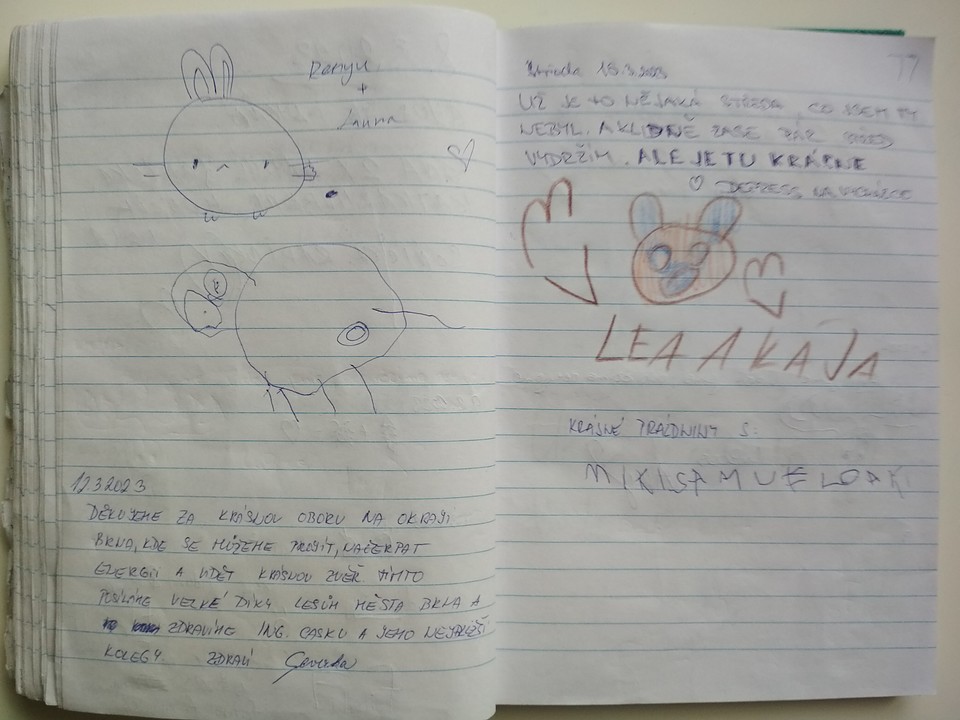 +
12.3.2023
DĚKUJEME ZA KRÁSNOU OBORU NA OKRAJI
BRNA, KDE SE MŮŽEME PROJÍT, NAČERPAT
ENERGII A VIDĚT KRÁSNOU ZVĚŘ TÍMTO
POSÍLÁME VELKÉ DÍKY LESŮM MĚSTA BRNA A
ZDRAVÍME ING. A JEHO NEJBLIŽŠÍ
KOLEGY. ZDRAVÍ
77
UŽ JE TO NĚJAKÁ STŘEDA, CO JSEM TY
NEBYL. A KLIDNĚ ZASE PÁR
VYDRŽÍM. ALE JE TU KRÁSNE
LEA A KAJA
KRÁSNÉ PRÁZDNINY S:
MIKI SAMUEL